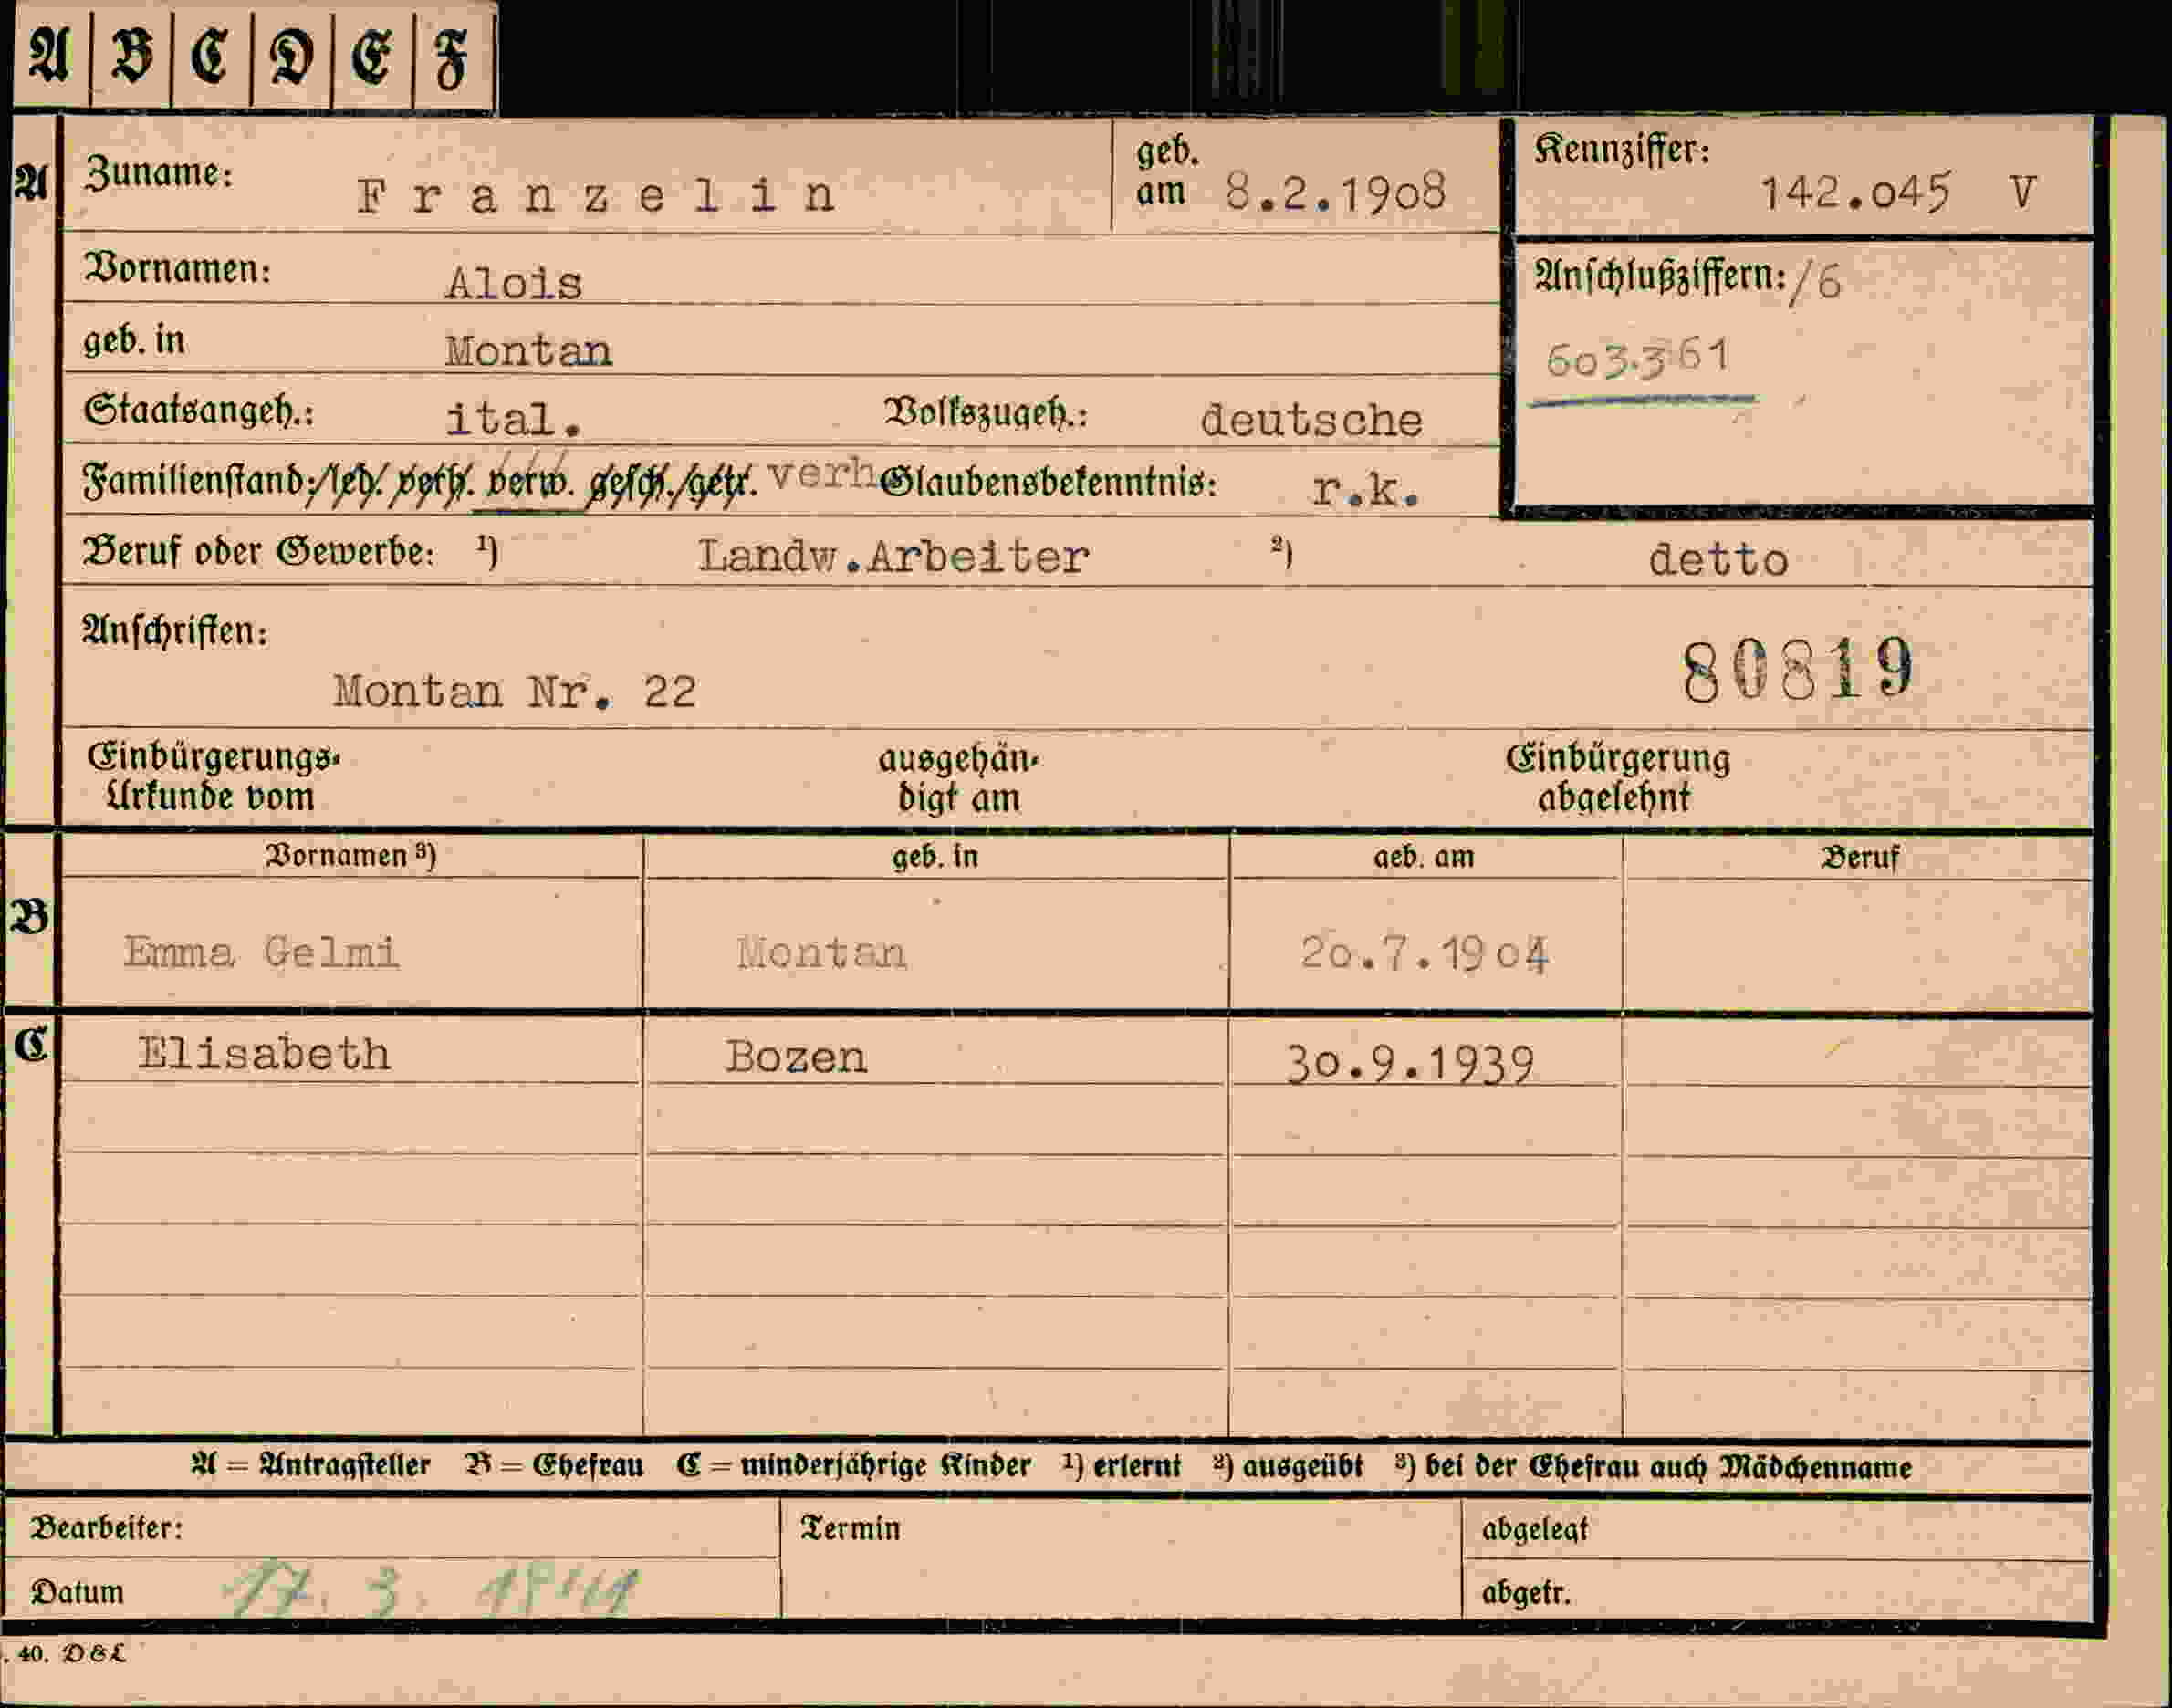 A B C D E F
A Zuname: Franzelin geb. am 8.2.1908 Kennziffer: 142.045 V
Vornamen: Alois Anschlußziffern: /6
geb. in Montan 603.361
Staatsangeh.: ital. Volkszugeh.: deutsche
Familienstand: led. verh. verw. gesch. getr. verh Glaubensbekenntnis: r.k.
Beruf oder Gewerbe: ¹) Landw.Arbeiter ²) detto
Anschriften:
Montan Nr. 22 80819
Einbürgerungs-Urkunde vom ausgehändigt am Einbürgerung abgelehnt
Vornamen ³) geb. in geb. am Beruf
B Emma Gelmi Montan 20.7.1904
C Elisabeth Bozen 30.9.1939
A = Antragsteller B = Ehefrau C = minderjährige Kinder ¹) erlernt ²) ausgeübt ³) bei der Ehefrau auch Mädchenname
Bearbeiter: Termin abgelegt
Datum 17. 3. abgetr.
. 40. D & L